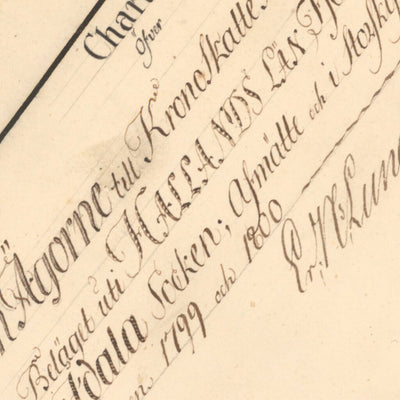 Char
Öfver
Ägorne till Krono Skatte
Beläget uti HALLANDS LÄN
dala Socken; Afmätte och i Storski
1799 och 1800
Lun